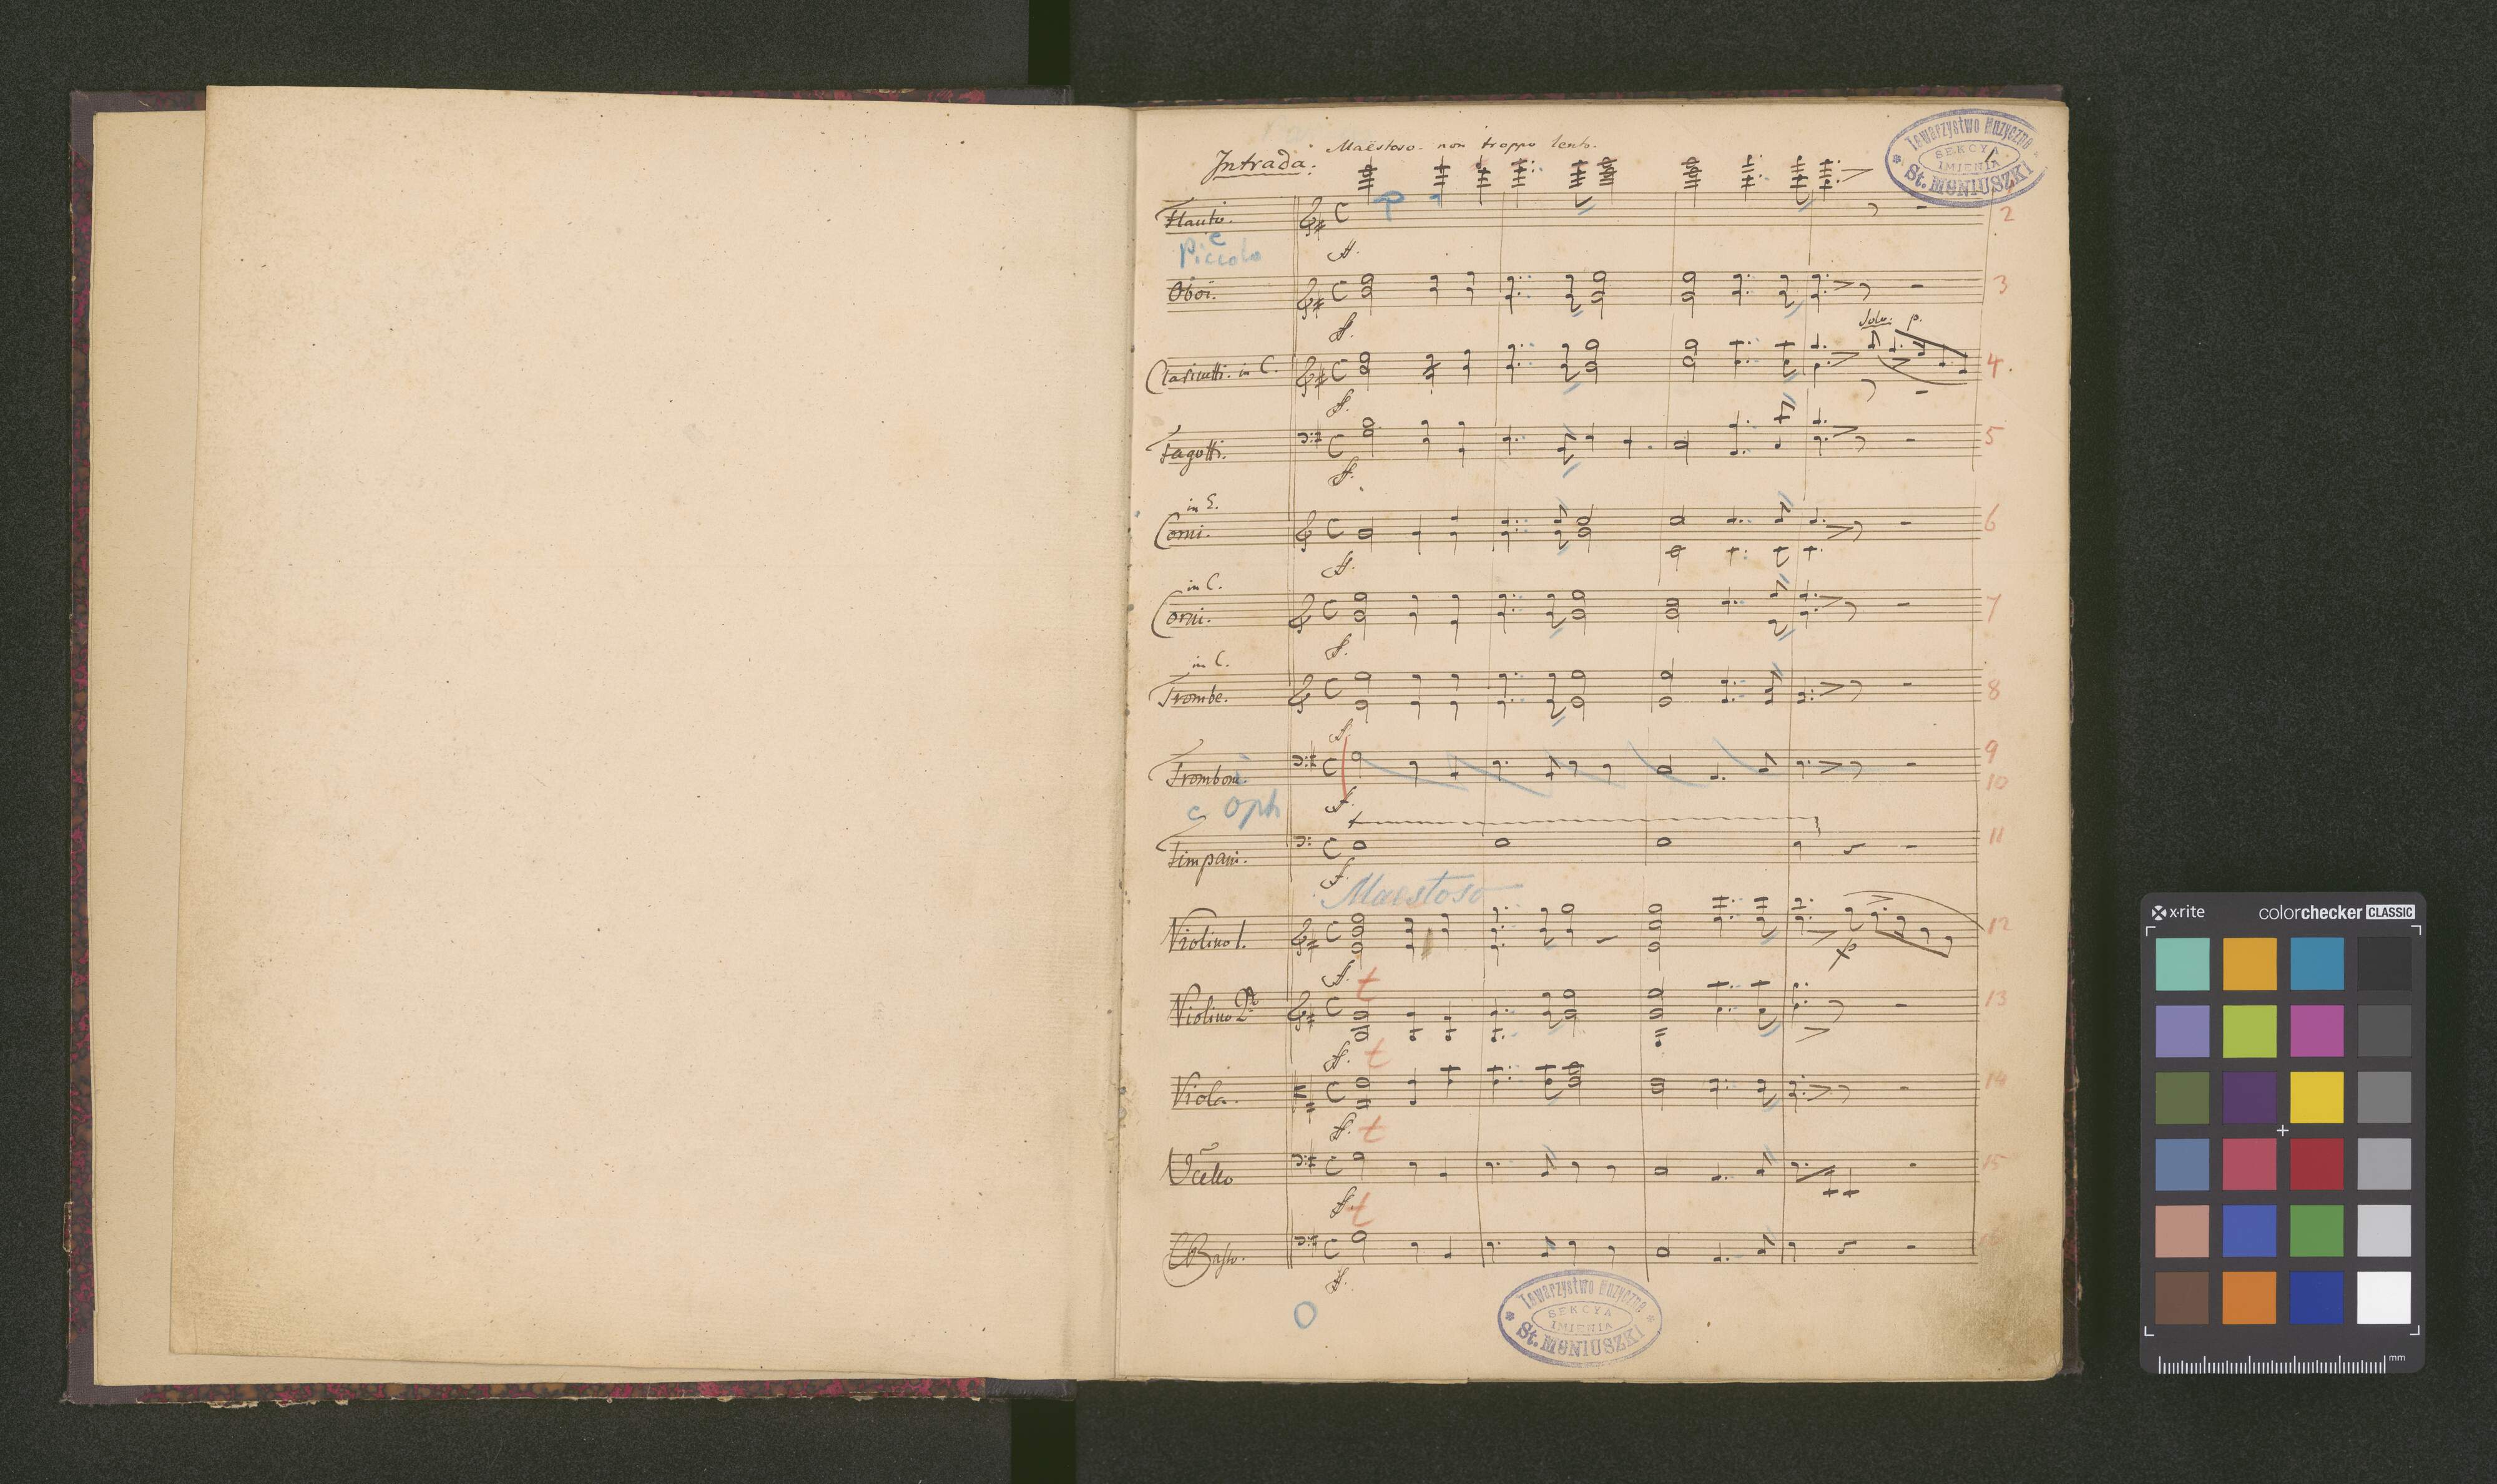 Intrada:
Maëstoso. non troppo lento.
Towarzystwo Muzyczne
SEKCYA
IMIENIA
St. MONIUSZKI
Flauto.
2
e
Piccolo
Oboi.
3
Solo: p.
Clarinetti. in C.
4.
Fagotti.
5
in E.
Corni.
6
in C.
Corni.
7
in C.
Trombe.
8
Tromboni.
9
10
c Oph
Timpani.
11
Maestoso
Violino 1.
12
p
Violino 2do
13
Viola.
14
Vcello
15
CBasso.
O
Towarzystwo Muzyczne
SEKCYA
IMIENIA
St. MONIUSZKI
x-rite
colorchecker CLASSIC
mm